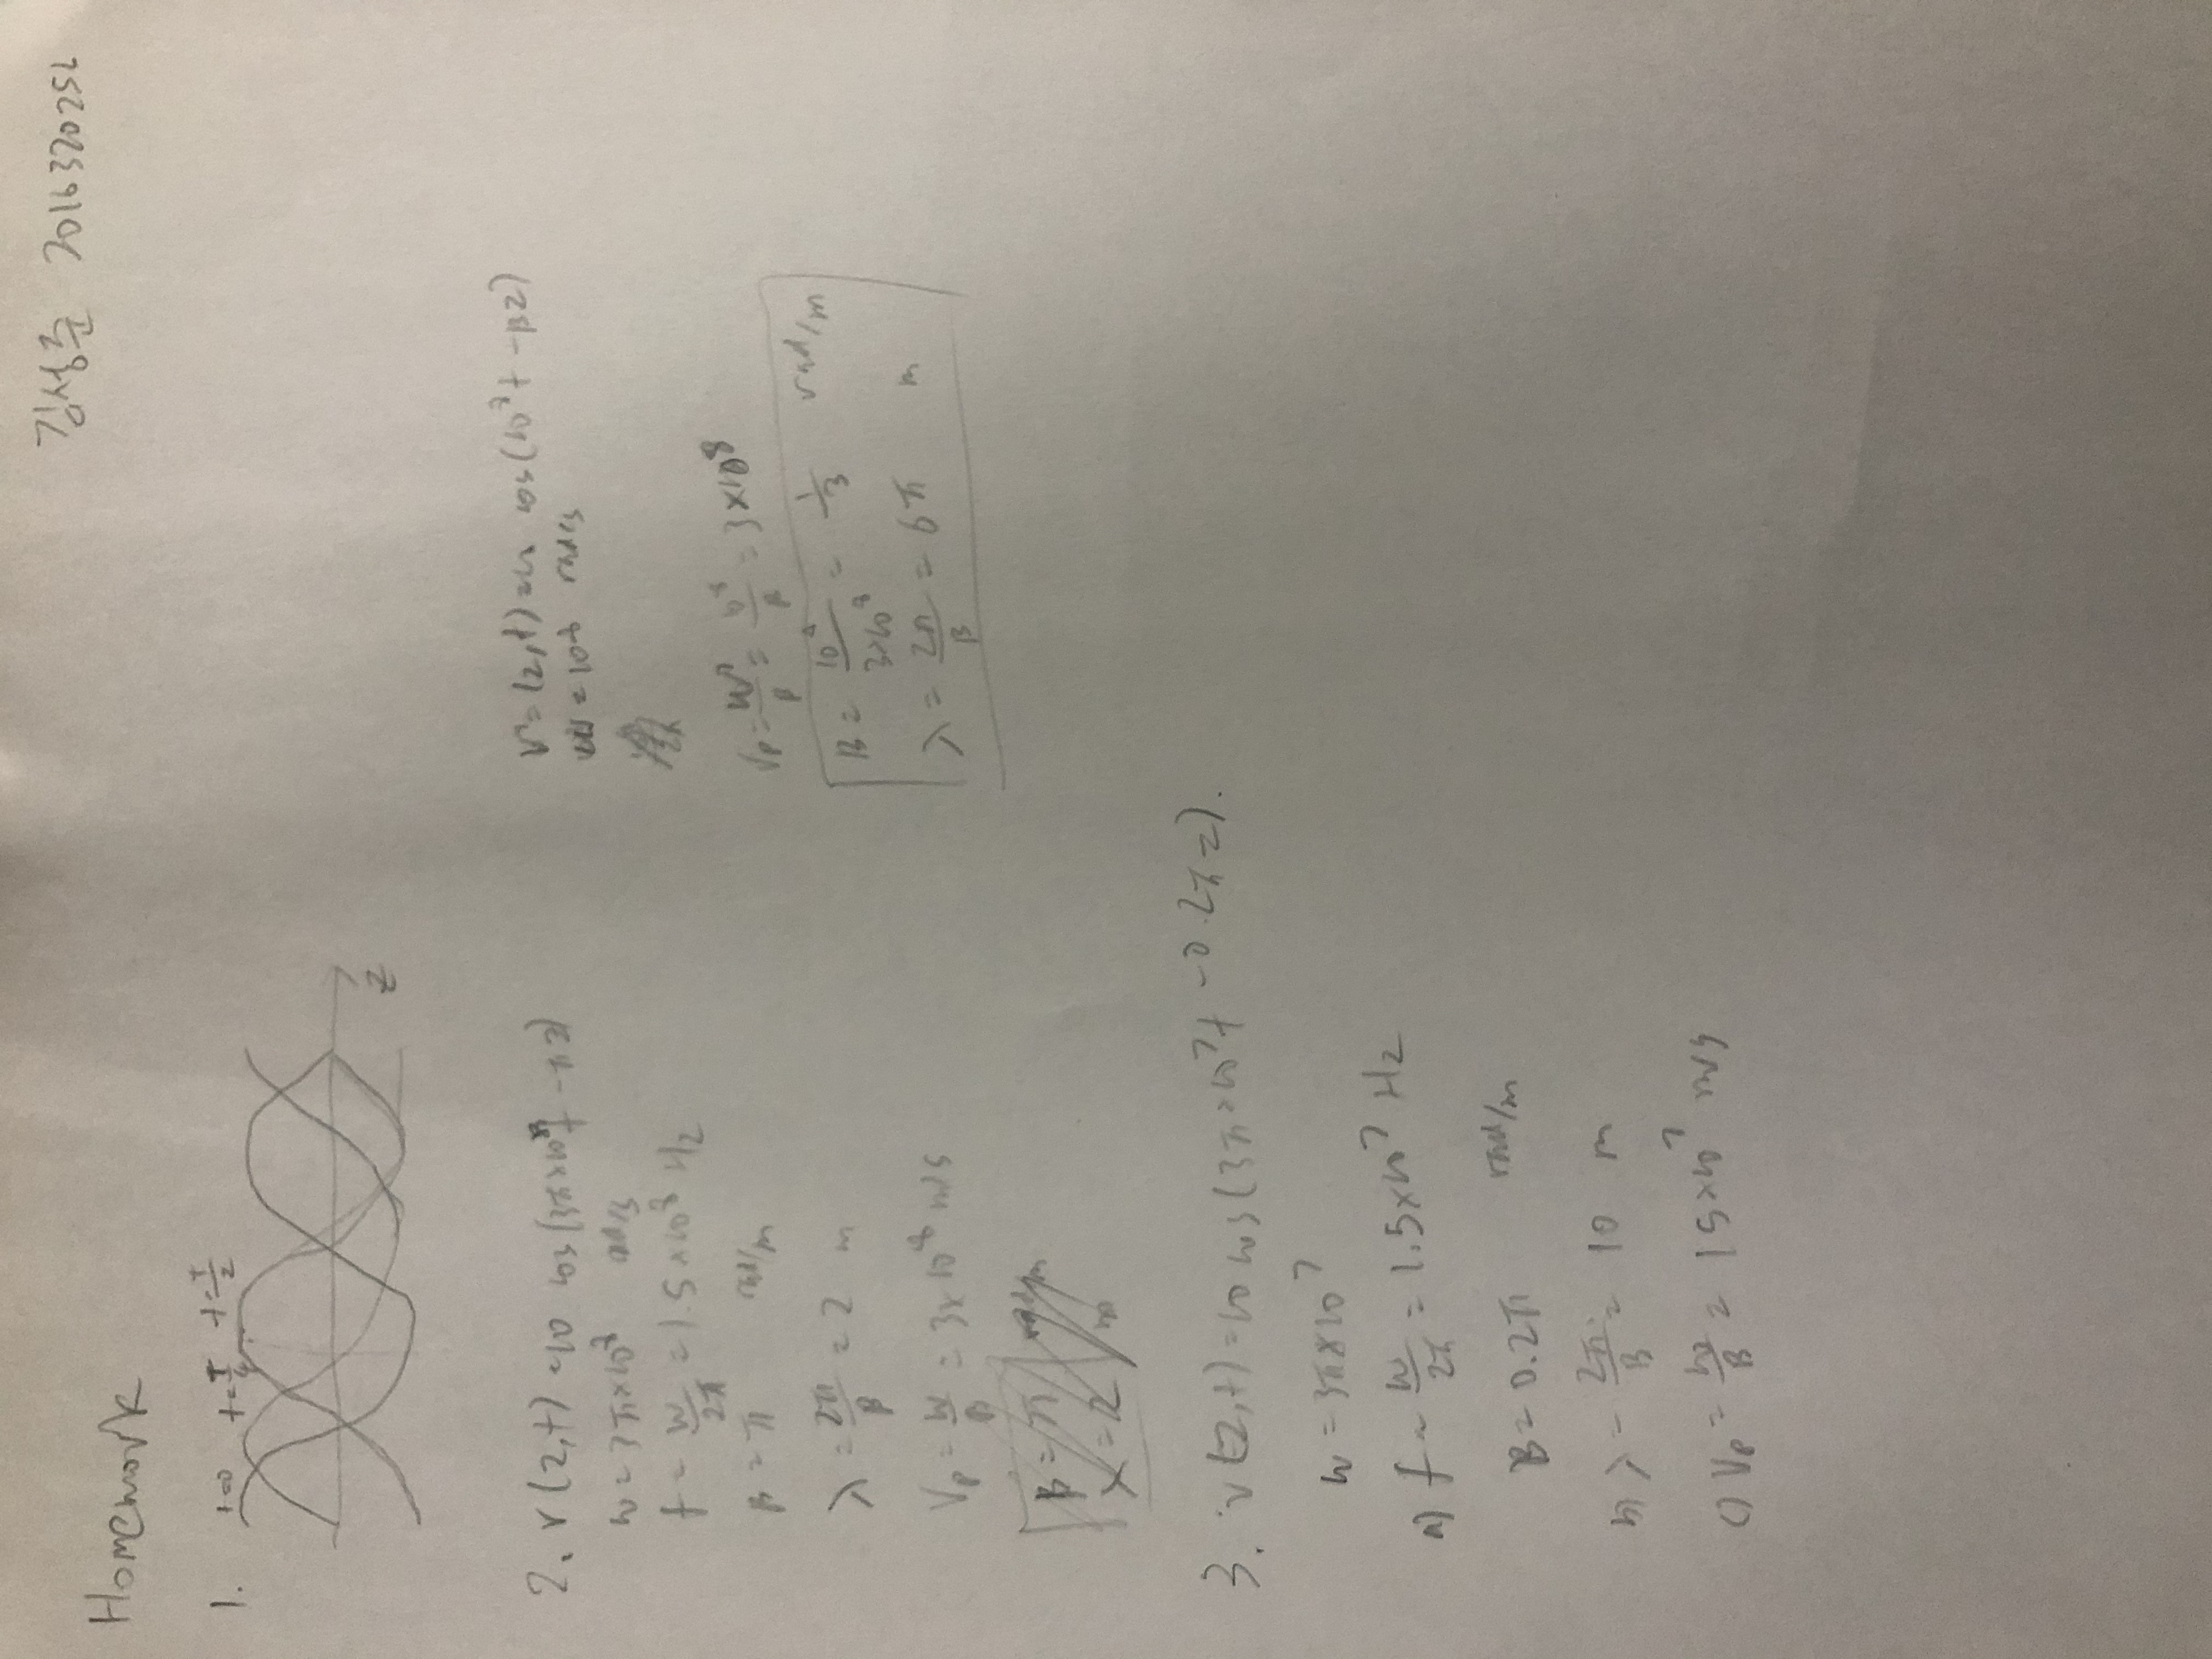 김성준 2016320252
Homework
1. t=0 t=T/4 t=T/2
z
2. v(z,t) = 10 cos(3π×10⁸t - πz)
w = 3π×10⁸ rad/s
f = w/2π = 1.5×10⁸ Hz
β = π rad/m
λ = 2π/β = 2 m
Vp = w/β = 3×10⁸ m/s
β = π rad/m
λ = 2 m
v = (z,t) = 10 cos(10⁸t - βz)
w = 10⁸ rad/s
Vp = w/β = 10⁸/β = 3×10⁸
β = 10⁸/3×10⁸ = 1/3 rad/m
λ = 2π/β = 6π m
3. v(z,t) = 10 cos(3π×10⁷t - 0.2πz).
w = 3π×10⁷
a) f = w/2π = 1.5×10⁷ Hz
β = 0.2π rad/m
b) λ = 2π/β = 10 m
c) Vp = w/β = 15×10⁷ m/s